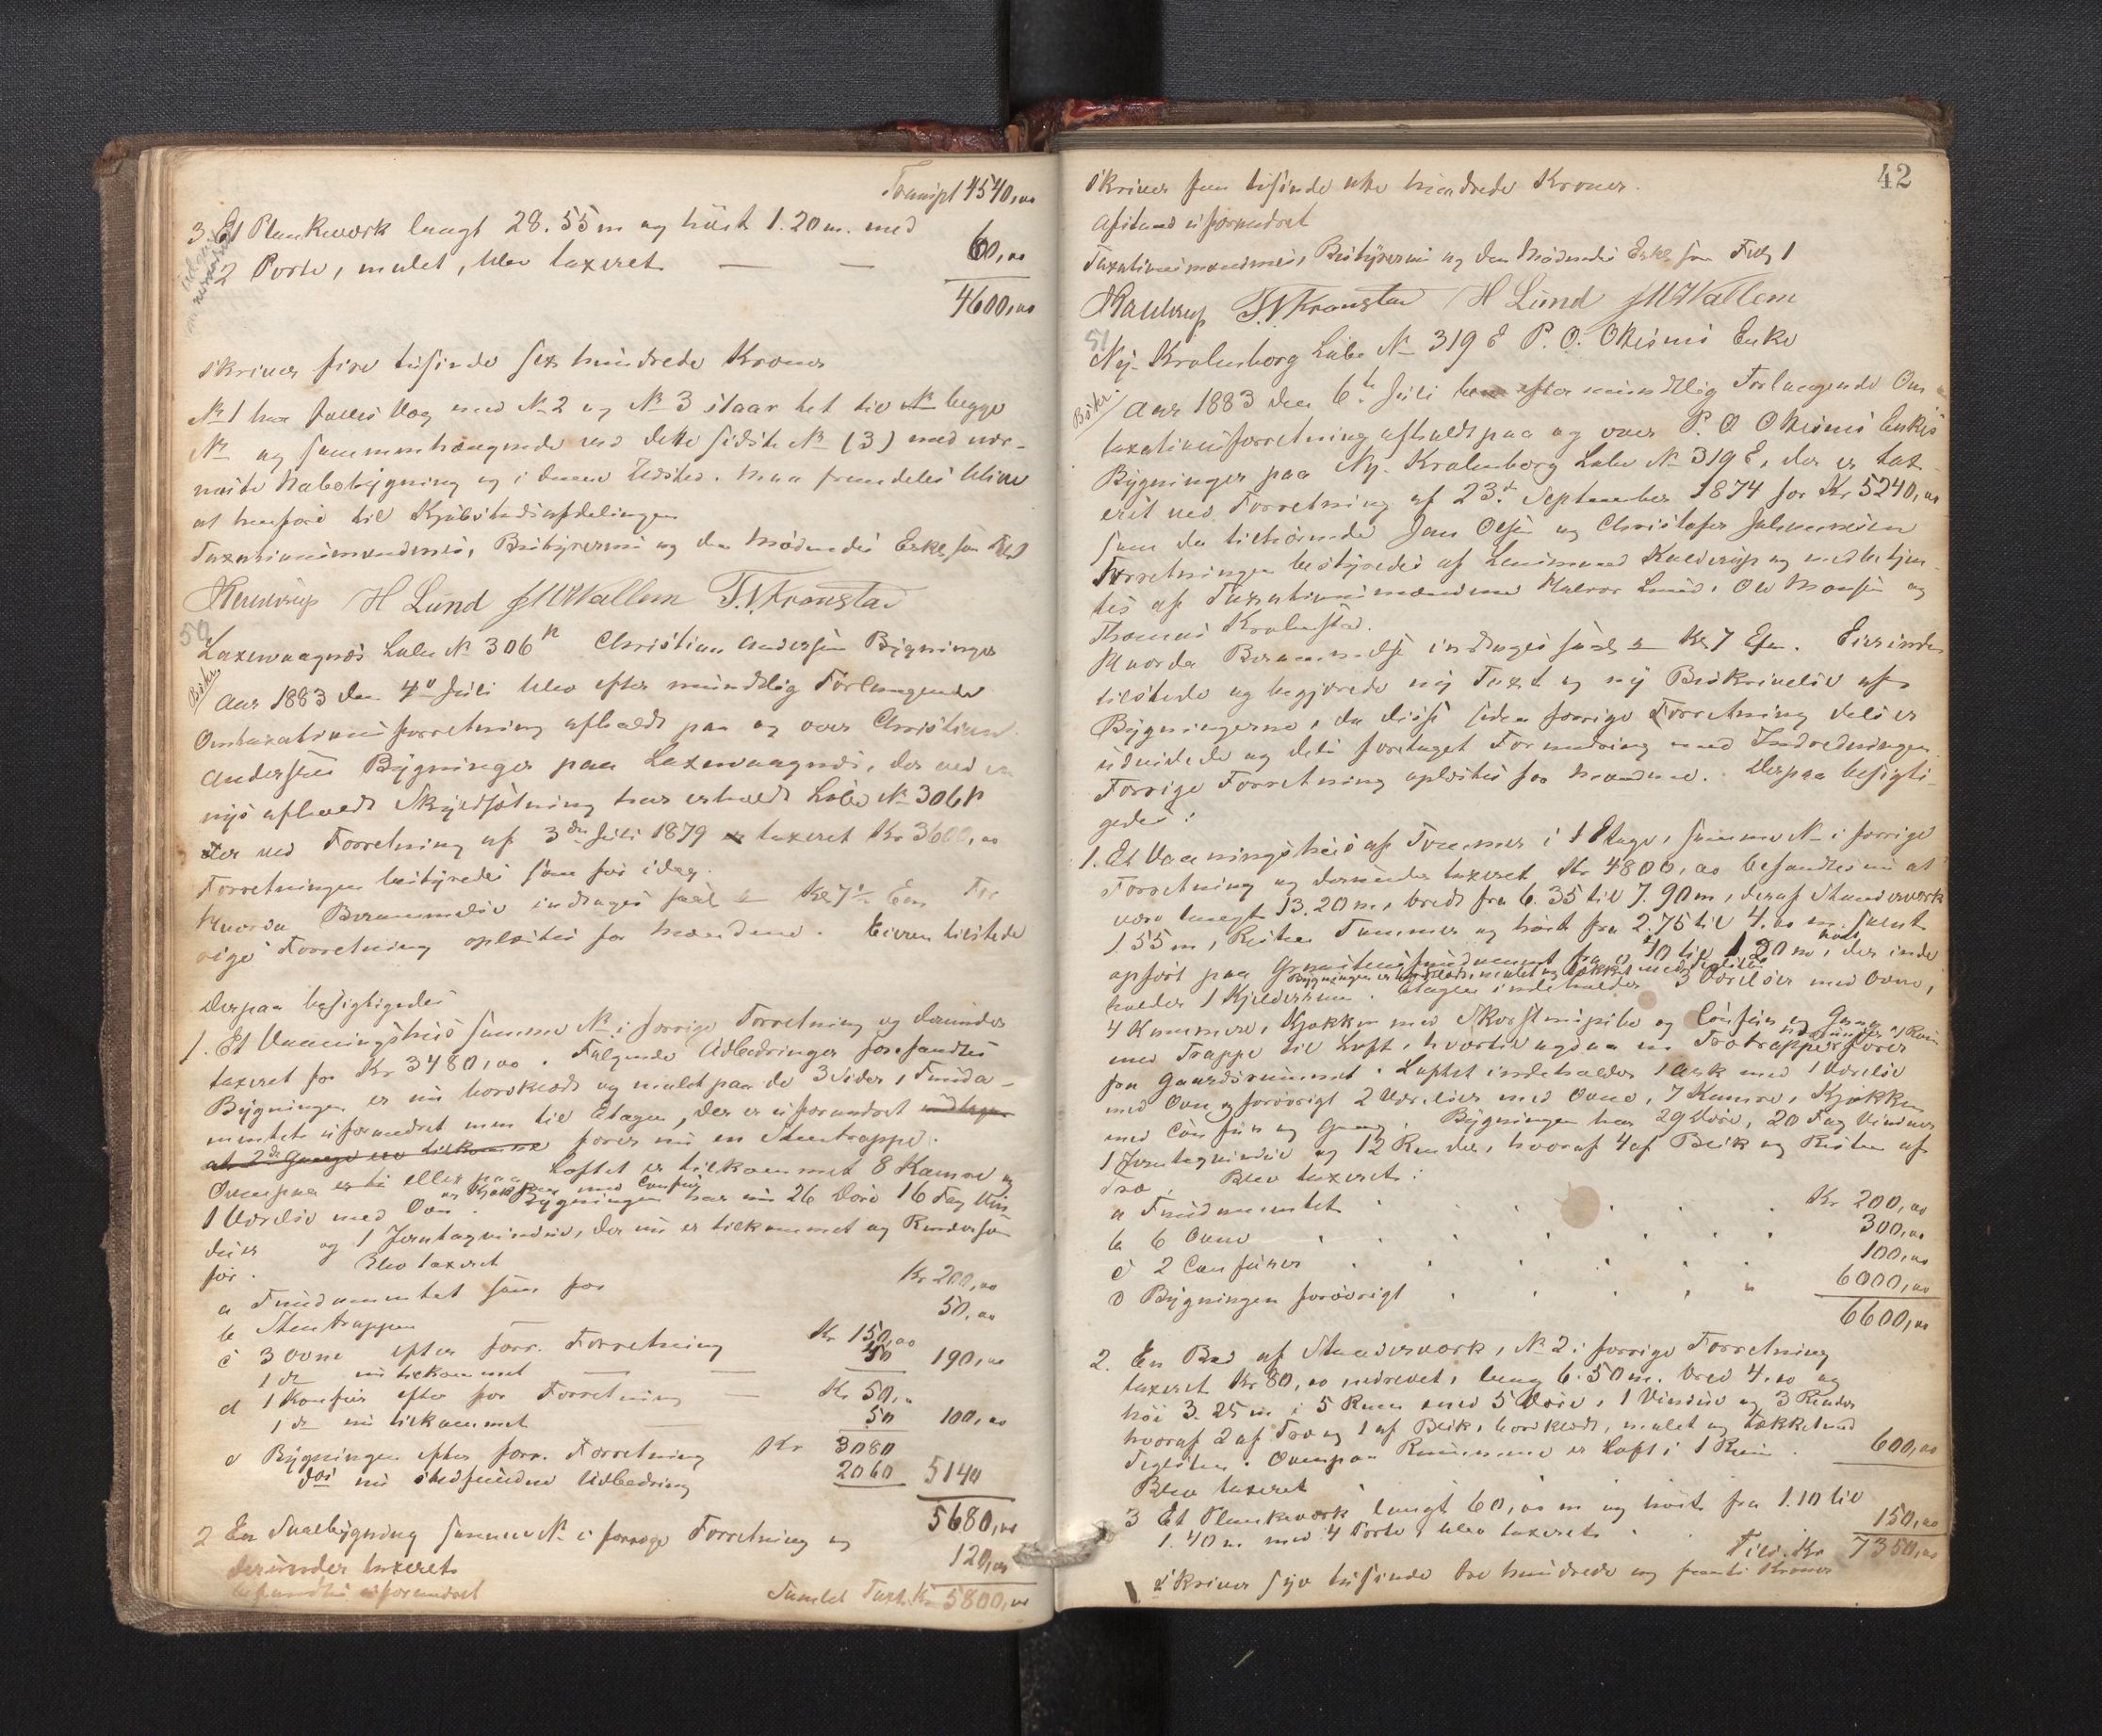 Transpt 4540,00
3 Et Plankeværk langt 28.55 m og höit 1.20 m. med
2 Porte, malet, blev taxeret — — 60,00
4600,00
skriver fire tusinde sex hundrede Kroner
No 1 har fælles Væg med No 2 og No 3 staar tet til begge
No og sammenhængende ved dette sidste No (3) med nær-
meste Nabobygning og i denne Udsted. Maa fremdeles blive
at henföre til Kjöbstadsafdelingen
Taxationsmændenes, Bestyrerens og den Mödendes
Kaldrup H Lund J M Wallem T. Kronstad
50
Laxevaagnæs Löbe No 306 n Christian Andersens Bygninger
Aar 1883 den 4de Juli blev efter mundtlig Forlangende
Omtaxationsforretning afholdt paa og over Christian
Andersens Bygninger paa Laxevaagnæs, der ved en
nys afholdt Skyldsætning har erholdt Löbe No 306 n
der ved Forretning af 3die Juli 1879 er taxeret Kr 3600,00
Forretningen bestyredes som för idag.
Hvorda Berammelse indtages saal Kl 7½ Em For
rige Forretning oplæstes for Mændene. Eieren tilstede
Derpaa besigtigedes
1. Et Vaaningshus samme No i forrige Forretning og derunder
taxeret for Kr 3480,00. Fölgende Udbedringer forefandtes
Bygningen er nu bordklædt og malet paa de 3 Sider, Funda-
mentet uforandret men til Etagen, der er uforandret
at 2de Gange ere tilkomne förer nu en Stentrappe.
Ovenpaa Loftet er tilkommet 8 Kamre og
1 Værelse med Ovn og Kjökken med Comfur. Bygningen har nu 26 Döre 16 Fag Vin-
duer og 1 Jerntagvindue, der nu er tilkommet og Render som
för. Blev taxeret
a Fundamentet som för Kr 200,00
b Stentrappen 50,00
c 3 Ovne efter forr. Forretning Kr 150,00
1 do nu tilkommet — — 40 190,00
d 1 Komfur efter for Forretning — Kr 50,00
1 do nu tilkommet 50 100,00
e Bygningen efter forr. Forretning Kr 3080
for nu stedfundne Udbedring 2060 5140
5680,00
2 En Sualbygning samme No i forrige Forretning og
derunder taxeret 120,00
befandtes uforandret Samlet Taxt Kr 5800,00
42
skriver fem tusinde otte hundrede Kroner.
Afstand uforandret
Taxationsmændenes, Bestyrerens og den Mödendes
Kaldrup T. Kronstad H Lund J M Wallem
51
Ny-Krohnborg Löbe No 319 E P. O. Olsens Enke
Aar 1883 den 6te Juli blev efter mundtlig Forlangende Om
taxationsforretning afholdt paa og over P. O Olsens Enkes
Bygninger paa Ny-Krohnborg Löbe No 319 E, der er tax-
eret ved Forretning af 23de September 1874 for Kr 5240,00
som da tilhörende Jan Olsen og Christofer Johannesen
Forretningen bestyredes af Lensmand Kaldrup og medbetjen-
tes af Taxationsmændene Halvor Lund, Ole Monsen og
Thomas Krohnstad.
Hvorda Berammelse indtages Kl 7 Efm. Eierinden
tilstede og begjærede ny Taxt og ny Beskrivelse af
Bygningerne, da disse siden forrige Forretning dels er
udvidede og dels foretaget Forandring med Indredningen
Forrige Forretning oplæstes for Mændene. Derpaa besigti-
gedes:
1. Et Vaaningshus af Tömmer i 1 Etage, samme No i forrige
Forretning og derunder taxeret Kr 4800,00 befandtes nu at
være langt 13.20 m, bredt fra 6.35 til 7.90 m, deraf Standerværk
1.55 m, Resten Tömmer og höit fra 2.75 til 4.00 m, samt
opfört paa Graastensfundament fra 0.40 til 1.20 m höit, der inde
holder 1 Kjelderrum. Bygningen er bordklædt, malet og tækket med Teglsten. Etagen indeholder 3 Værelser med Ovne,
4 Kammere, Kjökken med Skorstenspibe og Comfur og Gang
med Trappe til Loft, hvortil ogsaa en Trætrappe förer
fra Gaardsrummet. Loftet indeholder 1 Ark med 1 Værelse
med Ovn og forövrigt 2 Værelser med Ovne, 7 Kamre, Kjökken
med Comfur og Gang. Bygningen har 29 Döre, 20 Fag Vinduer
1 Jerntagvindue og 12 Render, hvoraf 4 af Blik og Resten af
Træ. Blev taxeret:
a Fundamentet Kr 200,00
b 6 Ovne 300,00
c 2 Comfurer 100,00
d Bygningen forövrigt " 6000,00
6600,00
2. En Bod af Standerværk, No 2 i forrige Forretning
taxeret Kr 80,00 nedrevet, lang 6.50 m. bred 4,00 og
höi 3.25 m i 5 Rum med 5 Döre, 1 Vindue og 3 Render
hvoraf 2 af Træ og 1 af Blik, bordklædt, malet og tækket med
Teglsten. Ovenpaa Rummene er Loft i 1 Rum.
Blev taxeret 600,00
3 Et Plankeværk langt 60,00 m og höit fra 1.10 til
1.40 m. med 4 Porte, blev taxeret 150,00
Tils. Kr 7350,00
skriver syv tusinde tre hundrede og femti Kroner